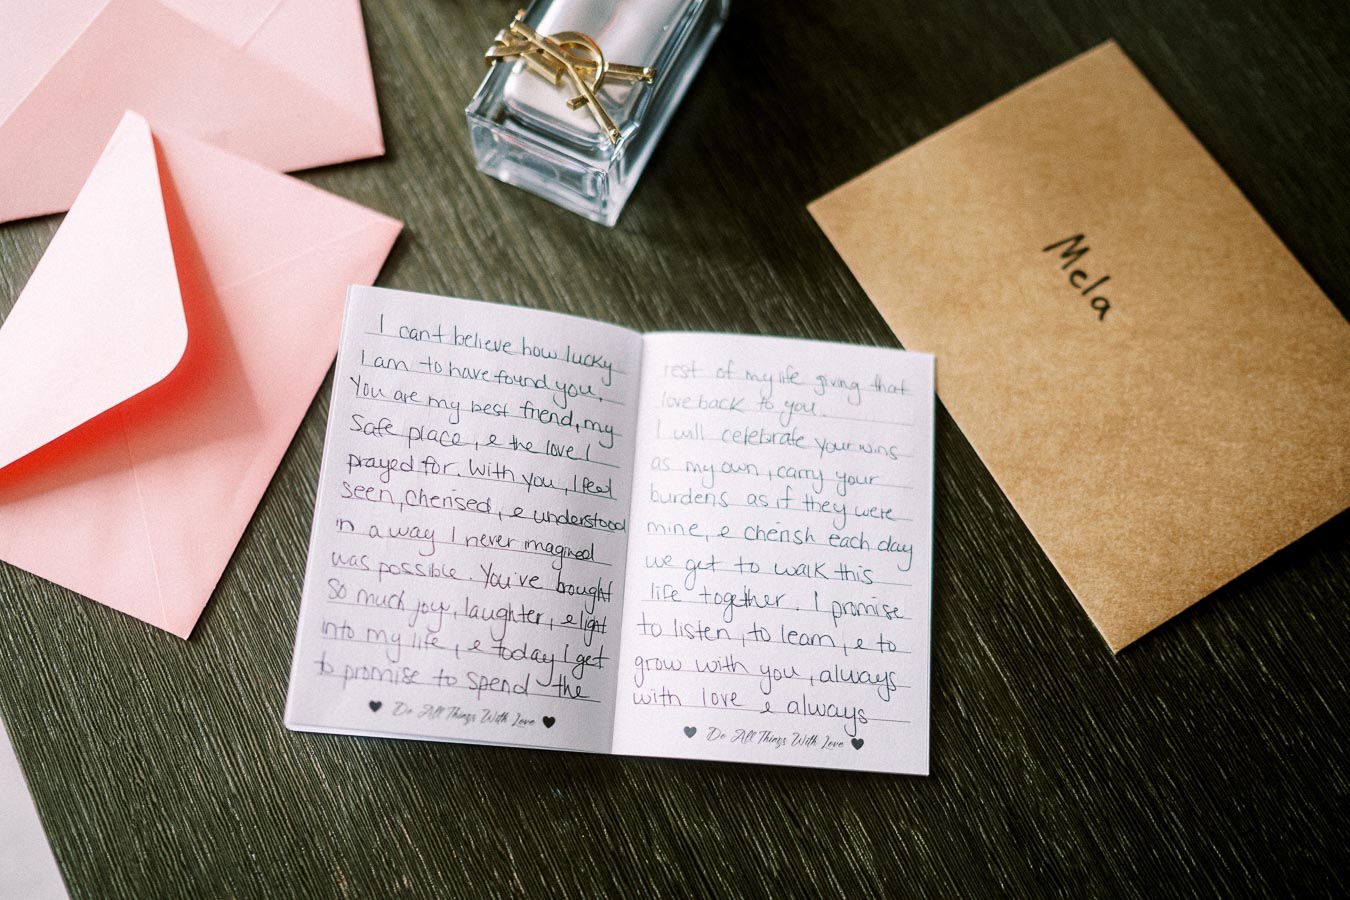 I can't believe how lucky
I am to have found you.
You are my best friend, my
Safe place, & the love I
prayed for. With you, I feel
seen, cherised, & understood
in a way I never imagined
was possible. You've bought
so much joy, laughter, & light
into my life, & today I get
to promise to spend the
Do All Things With Love
rest of my life giving that
love back to you.
I will celebrate your wins
as my own, carry your
burdens as if they were
mine, & cherish each day
we get to walk this
life together. I promise
to listen, to learn, & to
grow with you, always
with love & always
Do All Things With Love
Mela